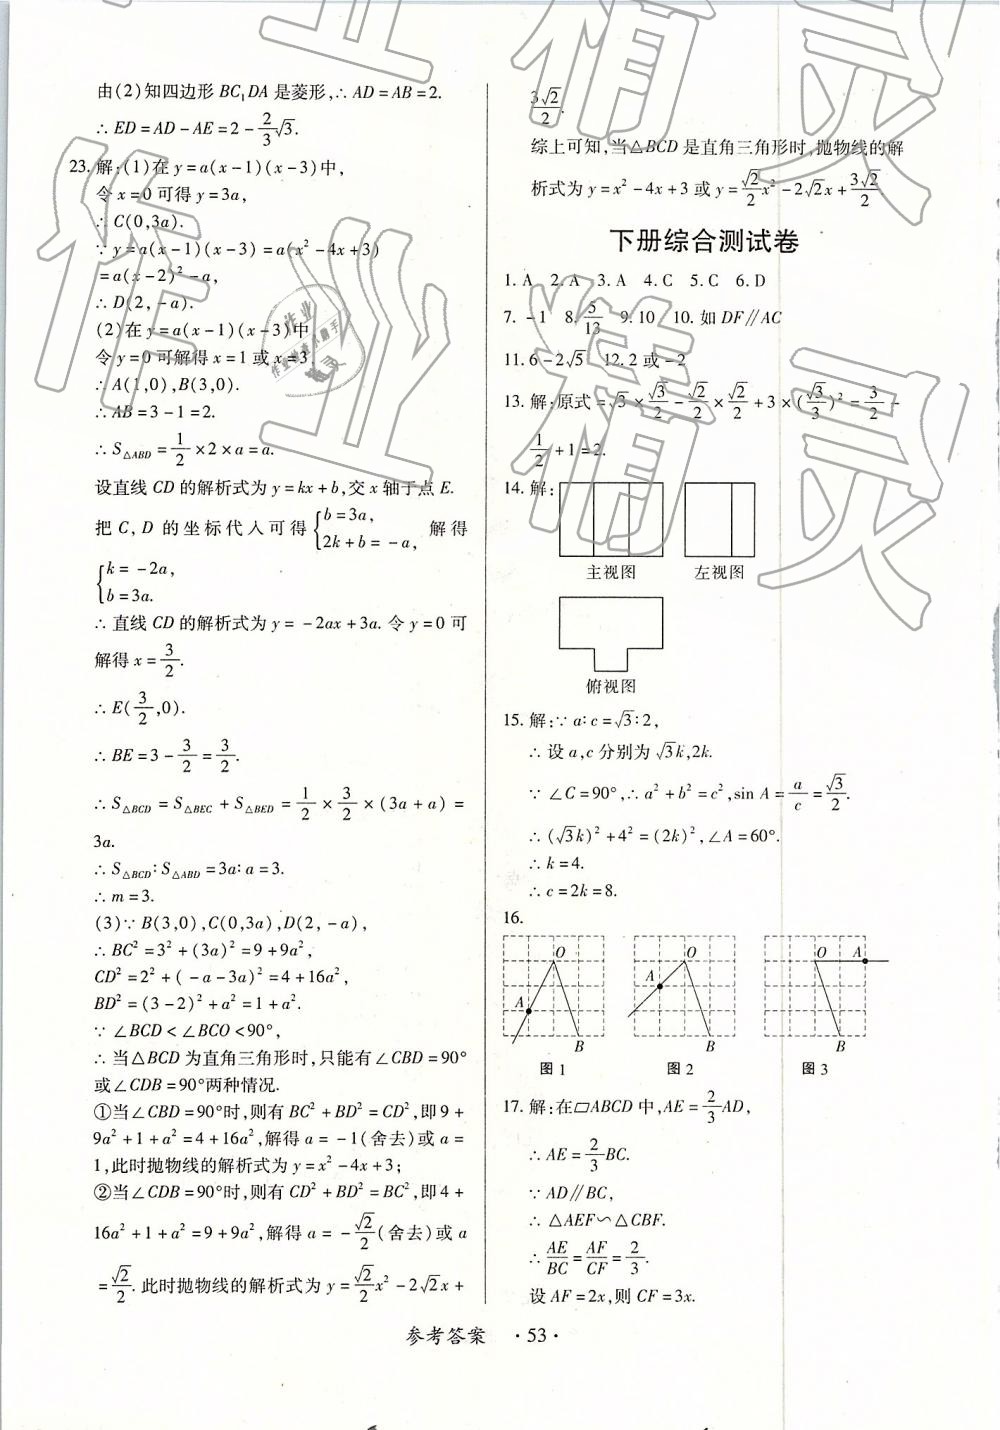 由(2)知四边形 BC₁DA 是菱形,∴ AD=AB=2.
∴ ED=AD-AE=2-2/3√3.
23. 解:(1)在 y=a(x-1)(x-3)中,
令 x=0 可得 y=3a,
∴ C(0,3a).
∵ y=a(x-1)(x-3)=a(x²-4x+3)
=a(x-2)²-a,
∴ D(2,-a).
(2)在 y=a(x-1)(x-3)中
令 y=0 可解得 x=1 或 x=3,
∴ A(1,0),B(3,0).
∴ AB=3-1=2.
∴ S△ABD=1/2×2×a=a.
设直线 CD 的解析式为 y=kx+b,交 x 轴于点 E.
把 C, D 的坐标代入可得 {b=3a, 2k+b=-a, 解得
{k=-2a,
b=3a.
∴ 直线 CD 的解析式为 y=-2ax+3a. 令 y=0 可
解得 x=3/2.
∴ E(3/2,0).
∴ BE=3-3/2=3/2.
∴ S△BCD=S△BEC+S△BED=1/2×3/2×(3a+a)=
3a.
∴ S△BCD∶S△ABD=3a∶a=3.
∴ m=3.
(3)∵ B(3,0),C(0,3a),D(2,-a),
∴ BC²=3²+(3a)²=9+9a²,
CD²=2²+(-a-3a)²=4+16a²,
BD²=(3-2)²+a²=1+a².
∵ ∠BCD<∠BCO<90°,
∴ 当△BCD 为直角三角形时,只能有∠CBD=90°
或∠CDB=90°两种情况.
①当∠CBD=90°时,则有 BC²+BD²=CD²,即 9+
9a²+1+a²=4+16a²,解得 a=-1(舍去)或 a=
1,此时抛物线的解析式为 y=x²-4x+3;
②当∠CDB=90°时,则有 CD²+BD²=BC²,即 4+
16a²+1+a²=9+9a²,解得 a=-√2/2(舍去)或 a
=√2/2. 此时抛物线的解析式为 y=√2/2x²-2√2x+
3√2/2.
综上可知,当△BCD 是直角三角形时,抛物线的解
析式为 y=x²-4x+3 或 y=√2/2x²-2√2x+3√2/2
下册综合测试卷
1. A 2. A 3. A 4. C 5. C 6. D
7. -1 8. 5/13 9. 10 10. 如 DF∥AC
11. 6-2√5 12. 2 或-2
13. 解:原式=√3×√3/2-√2/2×√2/2+3×(√3/3)²=3/2-
1/2+1=2.
14. 解:
主视图 左视图
俯视图
15. 解:∵ a∶c=√3∶2,
∴ 设 a,c 分别为√3k,2k.
∵ ∠C=90°,∴ a²+b²=c²,sin A=a/c=√3/2.
∴ (√3k)²+4²=(2k)²,∠A=60°.
∴ k=4.
∴ c=2k=8.
16.
O A B
O A B
O A B
图 1 图 2 图 3
17. 解:在▱ABCD 中,AE=2/3AD,
∴ AE=2/3BC.
∵ AD∥BC,
∴ △AEF∽△CBF.
∴ AE/BC=AF/CF=2/3.
设 AF=2x,则 CF=3x.
参考答案 ·53·
作业精灵
作业精灵